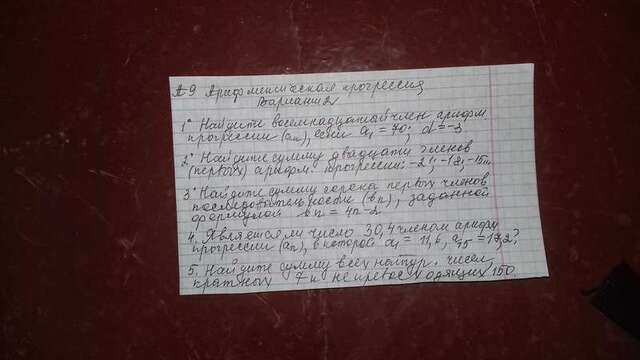 А-9 Арифметическая прогрессия
Вариант 2
1° Найдите восемнадцатый член арифм
прогрессии (an), если a1 = 70; d = -3
2° Найдите сумму двадцати членов
(первых) арифм. прогрессии: -21; -18; -15...
3° Найдите сумму сорока первых членов
последовательности (bn), заданной
формулой bn = 4n-2
4. Является ли число 30,4 членом арифм
прогрессии (an), в которой a1 = 11,6, a15 = 17,2?
5. Найдите сумму всех натур. чисел,
кратных 7 и не превосходящих 150.